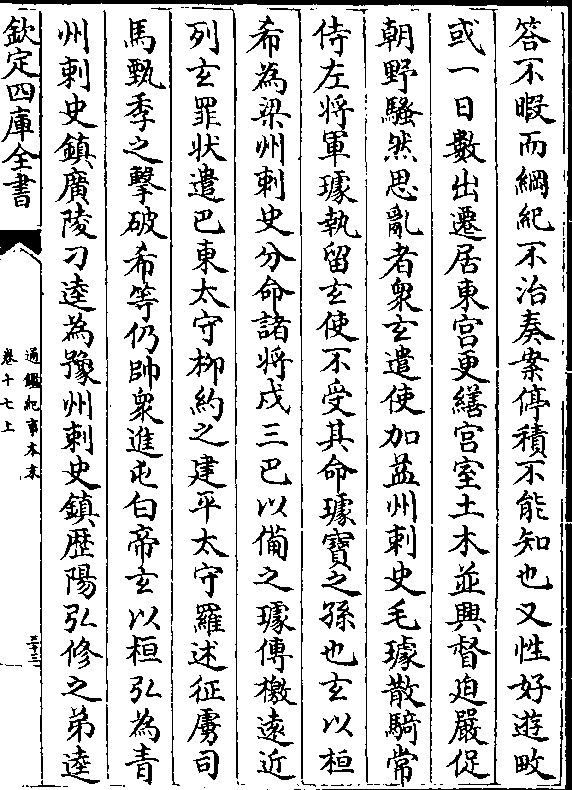 答不暇而綱紀不治奏案停積不能知也又性好遊畋
或一日數出遷居東宫更繕宫室土木並興督迫嚴促
朝野騷然思亂者衆玄遣使加益州刺史毛璩散騎常
侍左將軍璩執留玄使不受其命璩寶之孫也玄以桓
希為梁州刺史分命諸將戍三巴以備之璩傳檄遠近
列玄罪狀遣巴東太守柳約之建平太守羅述征虜司
馬甄季之擊破希等仍帥衆進屯白帝玄以桓弘為青
州刺史鎮廣陵刁逵為豫州刺史鎮歷陽弘修之弟逵
欽定四庫全書
通鑑紀事本末
卷十七上
三十三